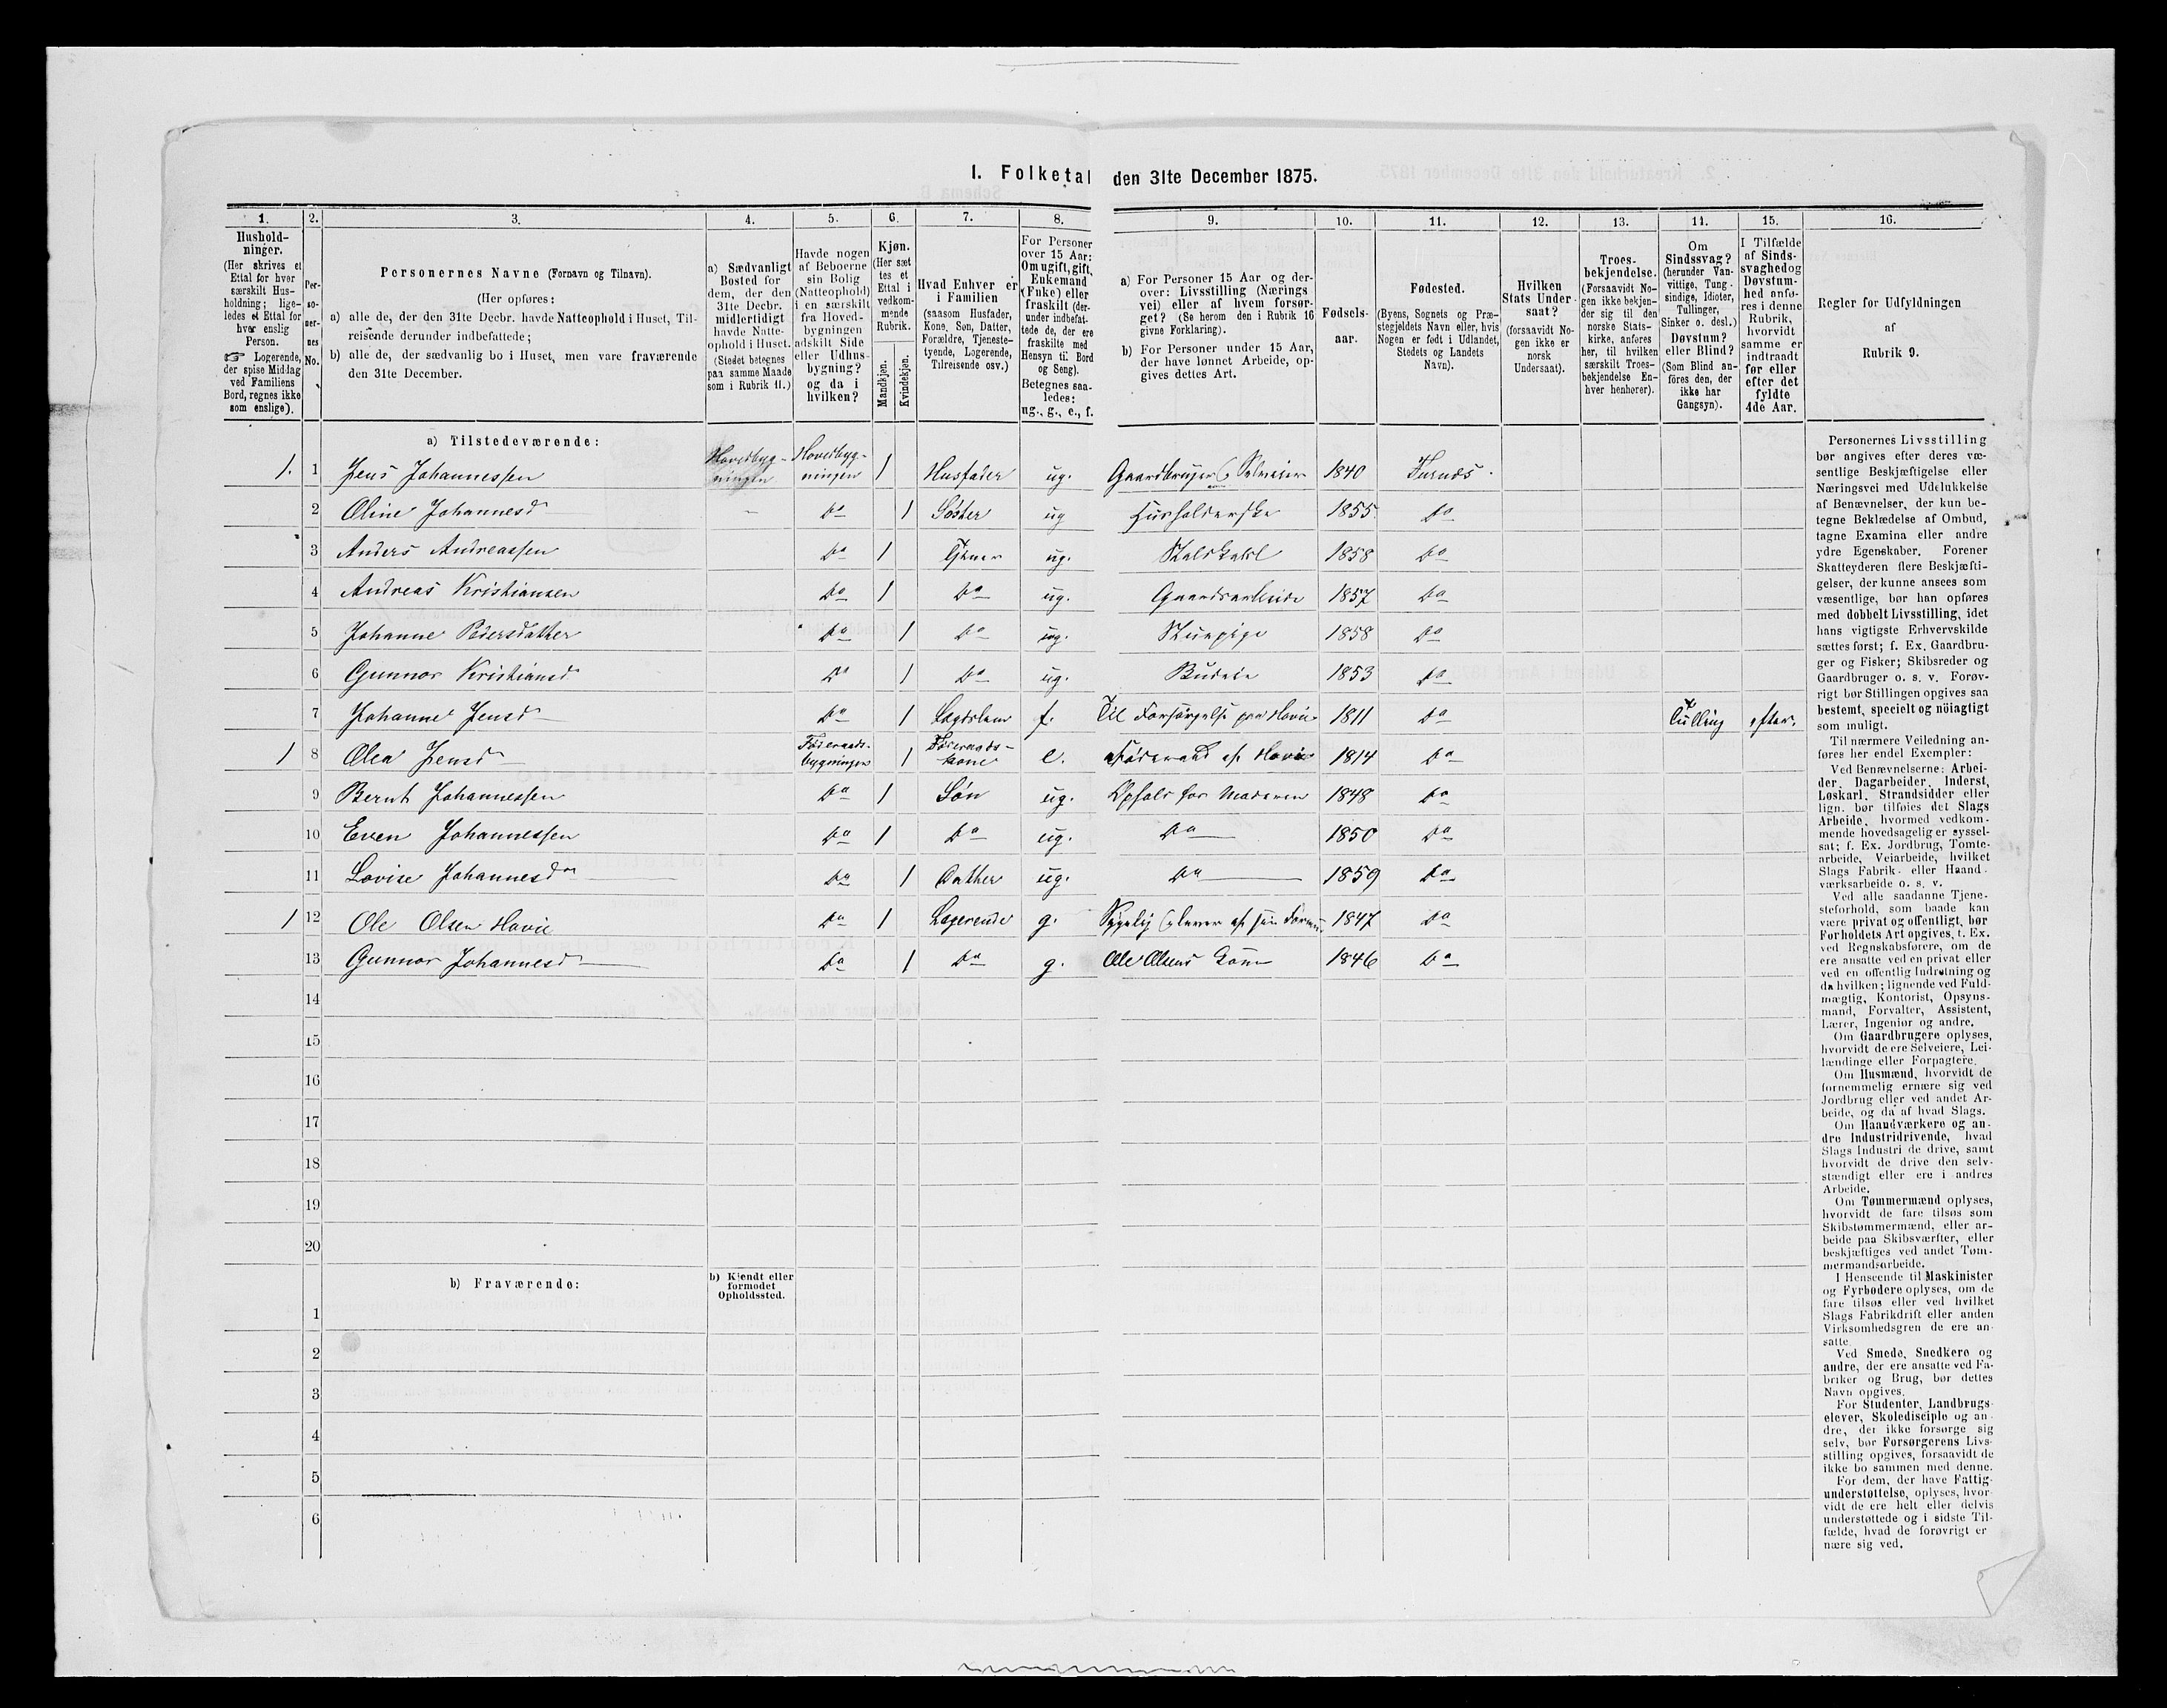 1. Folketal den 31te December 1875.
1. 2. 3. 4. 5. 6. 7. 8. 9. 10. 11. 12. 13. 14. 15. 16.
Hushold-
ninger.
(Her skrives et
Ettal for hver
særskilt Hus-
holdning; lige-
ledes et Ettal for
hver enslig
Person.
☞ Logerende,
der spise Middag
ved Familiens
Bord, regnes ikke
som enslige).
Per-
so-
ner-
nes
No.
Personernes Navne (Fornavn og Tilnavn).
(Her opføres:
a) alle de, der den 31te Decbr. havde Natteophold i Huset, Til-
reisende derunder indbefattede;
b) alle de, der sædvanlig bo i Huset, men vare fraværende
den 31te December.
a) Sædvanligt
Bosted for
dem, der den
31te Decbr.
midlertidigt
havde Natte-
ophold i Huset.
(Stedet betegnes
paa samme Maade
som i Rubrik 11.)
Havde nogen
af Beboerne
sin Bolig
(Natteophold)
i en særskilt
fra Hoved-
bygningen
adskilt Side
eller Udhus-
bygning?
og da i
hvilken?
Kjøn.
(Her sæt
tes et
Ettal i
vedkom-
mende
Rubrik.
Mandkjøn.
Kvindekjøn.
Hvad Enhver er
i Familien
(saasom Husfader,
Kone, Søn, Datter,
Forældre, Tjeneste-
tyende, Logerende,
Tilreisende osv.)
For Personer
over 15 Aar:
Om ugift, gift,
Enkemand
(Enke) eller
fraskilt (der-
under indbefat-
tede de, der ere
fraskilte med
Hensyn til Bord
og Seng).
Betegnes saa-
ledes:
ug., g., e., f.
a) For Personer 15 Aar og der-
over: Livsstilling (Nærings
vei) eller af hvem forsør-
get? (Se herom den i Rubrik 16
givne Forklaring).
b) For Personer under 15 Aar,
der have lønnet Arbeide, op-
gives dettes Art.
Fødsels-
aar.
Fødested.
(Byens, Sognets og Præ-
stegjeldets Navn eller, hvis
Nogen er født i Udlandet,
Stedets og Landets
Navn).
Hvilken
Stats Under-
saat?
(forsaavidt No-
gen ikke er
norsk
Undersaat).
Troes-
bekjendelse.
(Forsaavidt No-
gen ikke bekjen-
der sig til den
norske Stats-
kirke, anføres
her, til hvilken
særskilt Troes-
bekjendelse En-
hver henhører).
Om
Sindssvag?
(herunder Van-
vittige, Tung-
sindige, Idioter,
Tullinger,
Sinker o. desl.)
Døvstum?
eller Blind?
(Som Blind an-
føres den, der
ikke har
Gangsyn).
I Tilfælde
af Sinds-
svaghedog
Døvstum-
hed anfø-
res i denne
Rubrik,
hvorvidt
samme er
indtraadt
før eller
efter det
fyldte
4de Aar.
Regler for Udfyldningen
af
Rubrik 9.
a) Tilstedeværende:
1. 1 Jens Johannessen Hovedbyg-ningen Hovedbyg-ningen 1 Husfader ug. Gaardbruger, Selveier 1840 Furnæs.
2 Oline Johannesd – Do 1 Søster ug Husholderske 1855. Do
3 Anders Andreassen Do 1 Tjener ug. Staldkarl 1858 Do
4 Andreas Kristiansen Do 1 Do ug. Gaardsarbeide 1857 Do
5 Johanne Pedersdatter Do 1 Do ug. Stuepige 1858 Do
6 Gunnor Kristiansd Do 1 Do ug. Budeie 1853 Do
7 Johanne Jensd Do 1 Lægdslem f. Til Forsørgelse paa Hovie 1811 Do Tulling efter.
1 8 Olea Jensd Føderaads-bygningen 1 Føderaads-kone e. Føderaad af Hovie 1814 Do
9 Bernt Johannessen Do 1 Søn ug. Ophold hos Moderen 1848 Do
10 Even Johannessen Do 1 Do ug. Do 1850 Do
11 Lovise Johannesd Do 1 Datter ug. Do 1859 Do
1 12 Ole Olsen Hovie Do 1 Logerende g. Sygelig, lever af sin Formue. 1847 Do
13 Gunnor Johannesd Do 1 Do g. Ole Olsens Kone 1846 Do
14
15
16
17
18
19
20
b) Fraværende:
b) Kjendt eller
formodet
Opholdssted.
1
2
3
4
5
6
Personernes Livsstilling
bør angives efter deres væ-
sentlige Beskjæftigelse eller
Næringsvei med Udelukkelse
af Benævnelser, der kun be-
tegne Beklædelse af Ombud,
tagne Examina eller andre
ydre Egenskaber. Forener
Skatteyderen flere Beskjæfti-
gelser, der kunne ansees som
væsentlige, bør han opføres
med dobbelt Livsstilling, idet
hans vigtigste Erhvervskilde
sættes først; f. Ex. Gaardbru-
ger og Fisker; Skibsreder og
Gaardbruger o. s. v. Forøv-
rigt bør Stillingen opgives saa
bestemt, specielt og nöiagtigt
som muligt.
Til nærmere Veiledning an-
føres her endel Exempler:
Ved Benævnelserne: Arbei-
der, Dagarbeider, Inderst,
Løskarl, Strandsidder eller
lign. bør tilføies det Slags
Arbeide, hvormed vedkom-
mende hovedsagelig er syssel-
sat; f. Ex. Jordbrug, Tomte-
arbeide, Veiarbeide, hvilket
Slags Fabrik- eller Haand-
værksarbeide o. s. v.
Ved alle saadanne Tjene-
steforhold, som baade kan
være privat og offentligt, bør
Forholdets Art opgives, t. Ex.
ved Regnskabsførere, om de
ere ansatte ved en privat eller
ved en offentlig Indretning og
da hvilken; lignende ved Fuld-
mægtig, Kontorist, Opsyns-
mand, Forvalter, Assistent,
Lærer, Ingeniør og andre.
Om Gaardbrugere oplyses,
hvorvidt de ere Selveiere, Lei-
lændinge eller Forpagtere.
Om Husmænd, hvorvidt de
fornemmelig ernære sig ved
Jordbrug eller ved andet Ar-
beide, og da af hvad Slags.
Om Haandværkere og an-
dre Industridrivende, hvad
Slags Industri de drive, samt
hvorvidt de drive den selv-
stændigt eller ere i andres
Arbeide.
Om Tømmermænd oplyses,
hvorvidt de fare tilsøs som
Skibstømmermænd, eller ar-
beide paa Skibsværfter, eller
beskjæftiges ved andet Tøm-
mermandsarbeide.
I Henseende til Maskinister
og Fyrbødere oplyses, om de
fare tilsøs eller ved hvilket
Slags Fabrikdrift eller anden
Virksomhedsgren de ere an-
satte.
Ved Smede, Snedkere og
andre, der ere ansatte ved Fa-
briker og Brug, bør dettes
Navn opgives.
For Studenter, Landbrugs-
elever, Skoledisciple og an-
dre, der ikke forsørge sig
selv, bør Forsørgerens Livs-
stilling opgives, forsaavidt de
ikke bo sammen med denne.
For dem, der have Fattig-
understøttelse, oplyses, hvor-
vidt de ere helt eller delvis
understøttede og i sidste Til-
fælde, hvad de forøvrigt er
nære sig ved.